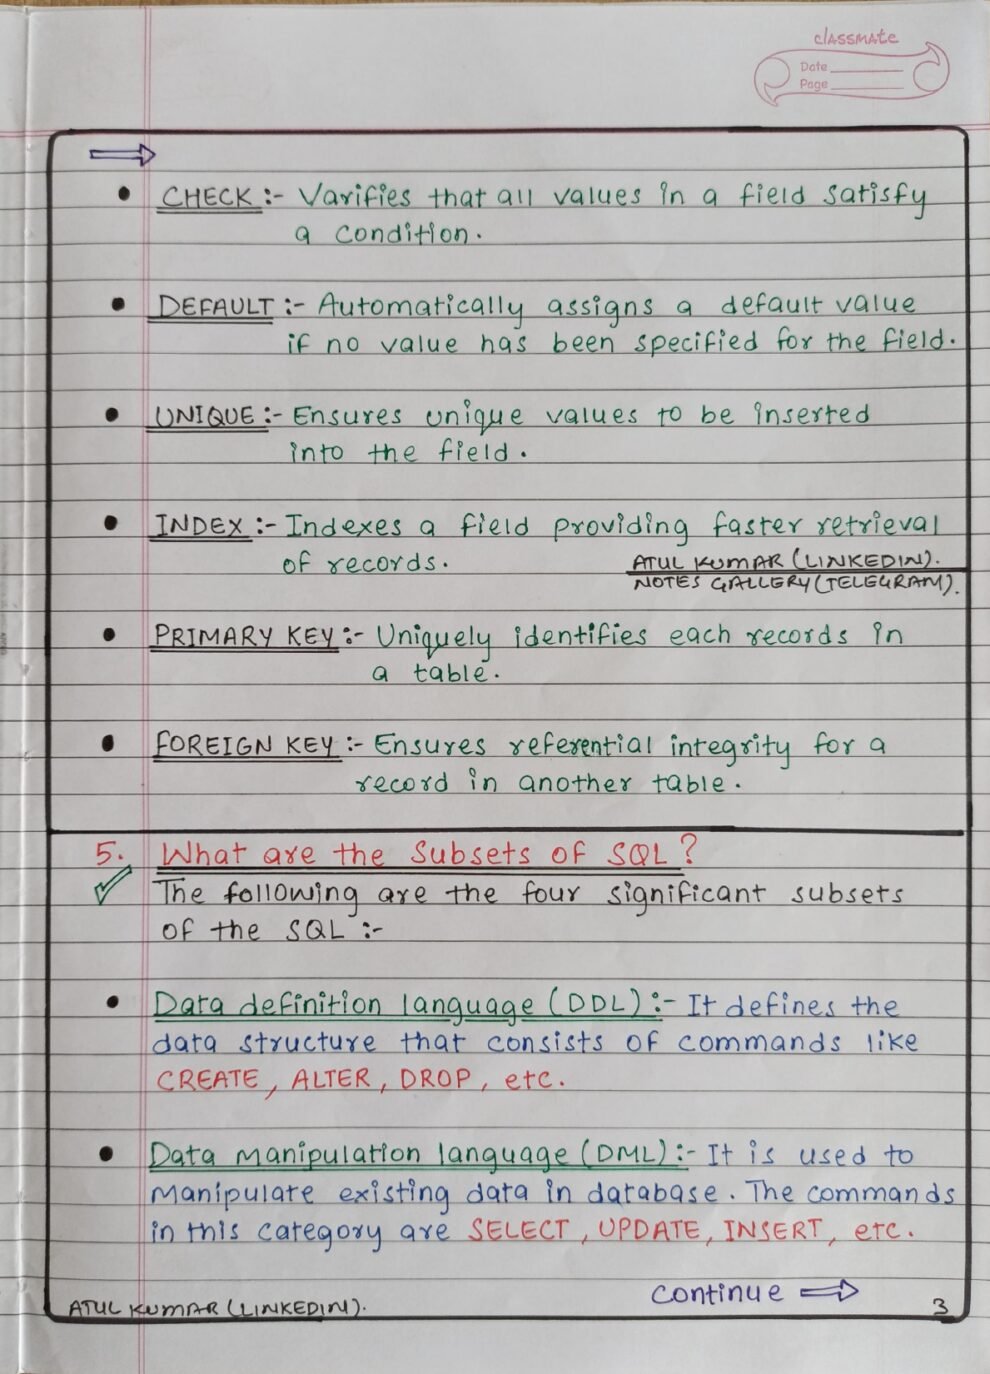 classmate
Date
Page
• CHECK :- Varifies that all values in a field satisfy
a condition.
• DEFAULT :- Automatically assigns a default value
if no value has been specified for the field.
• UNIQUE :- Ensures unique values to be inserted
into the field.
• INDEX :- Indexes a field providing faster retrieval
of records.
ATUL KUMAR (LINKEDIN).
NOTES GALLERY (TELEGRAM).
• PRIMARY KEY :- Uniquely identifies each records in
a table.
• FOREIGN KEY :- Ensures referential integrity for a
record in another table.
5. What are the Subsets of SQL ?
The following are the four significant subsets
of the SQL :-
• Data definition language (DDL) :- It defines the
data structure that consists of commands like
CREATE, ALTER, DROP, etc.
• Data manipulation language (DML) :- It is used to
manipulate existing data in database. The commands
in this category are SELECT, UPDATE, INSERT, etc.
Continue ⇒
ATUL KUMAR (LINKEDIN).
3